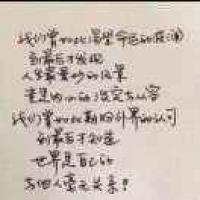 我们曾如此渴望命运的波澜
到最后才发现
人生最曼妙的风景
竟是内心的淡定与从容
我们曾如此期盼外界的认可
到最后才知道
世界是自己的
与他人毫无关系！